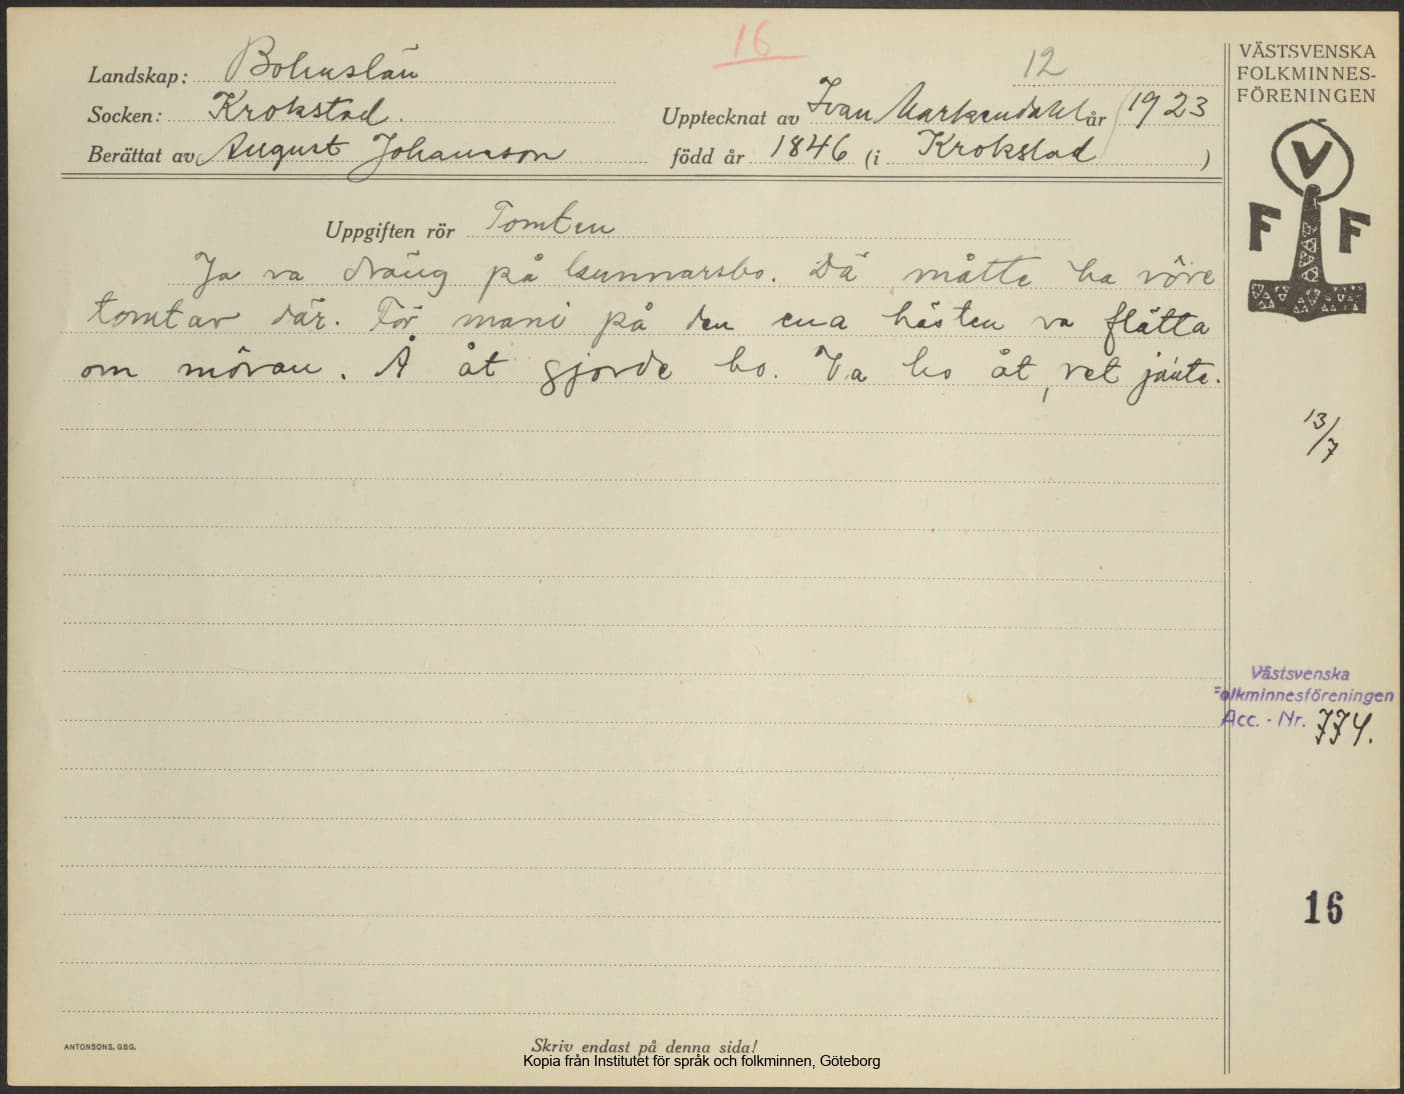 16
12
Landskap: Bohuslän
Socken: Krokstad.
Upptecknat av Ivan Markendahl år 1923
Berättat av August Johansson
född år 1846 (i Krokstad )
Uppgiften rör Tomten
Ja va dräng på Gunnarsbo. Dä måtte ha vöre
tomtar där. För mani på den ena hästen va flätta
om möran. Å åt gjorde ho. Va ho åt, vet jänte.
VÄSTSVENSKA
FOLKMINNES-
FÖRENINGEN
V
F F
13/7
Västsvenska
Folkminnesföreningen
Acc. - Nr. 774.
16
ANTONSONS, GBG.
Skriv endast på denna sida!
Kopia från Institutet för språk och folkminnen, Göteborg